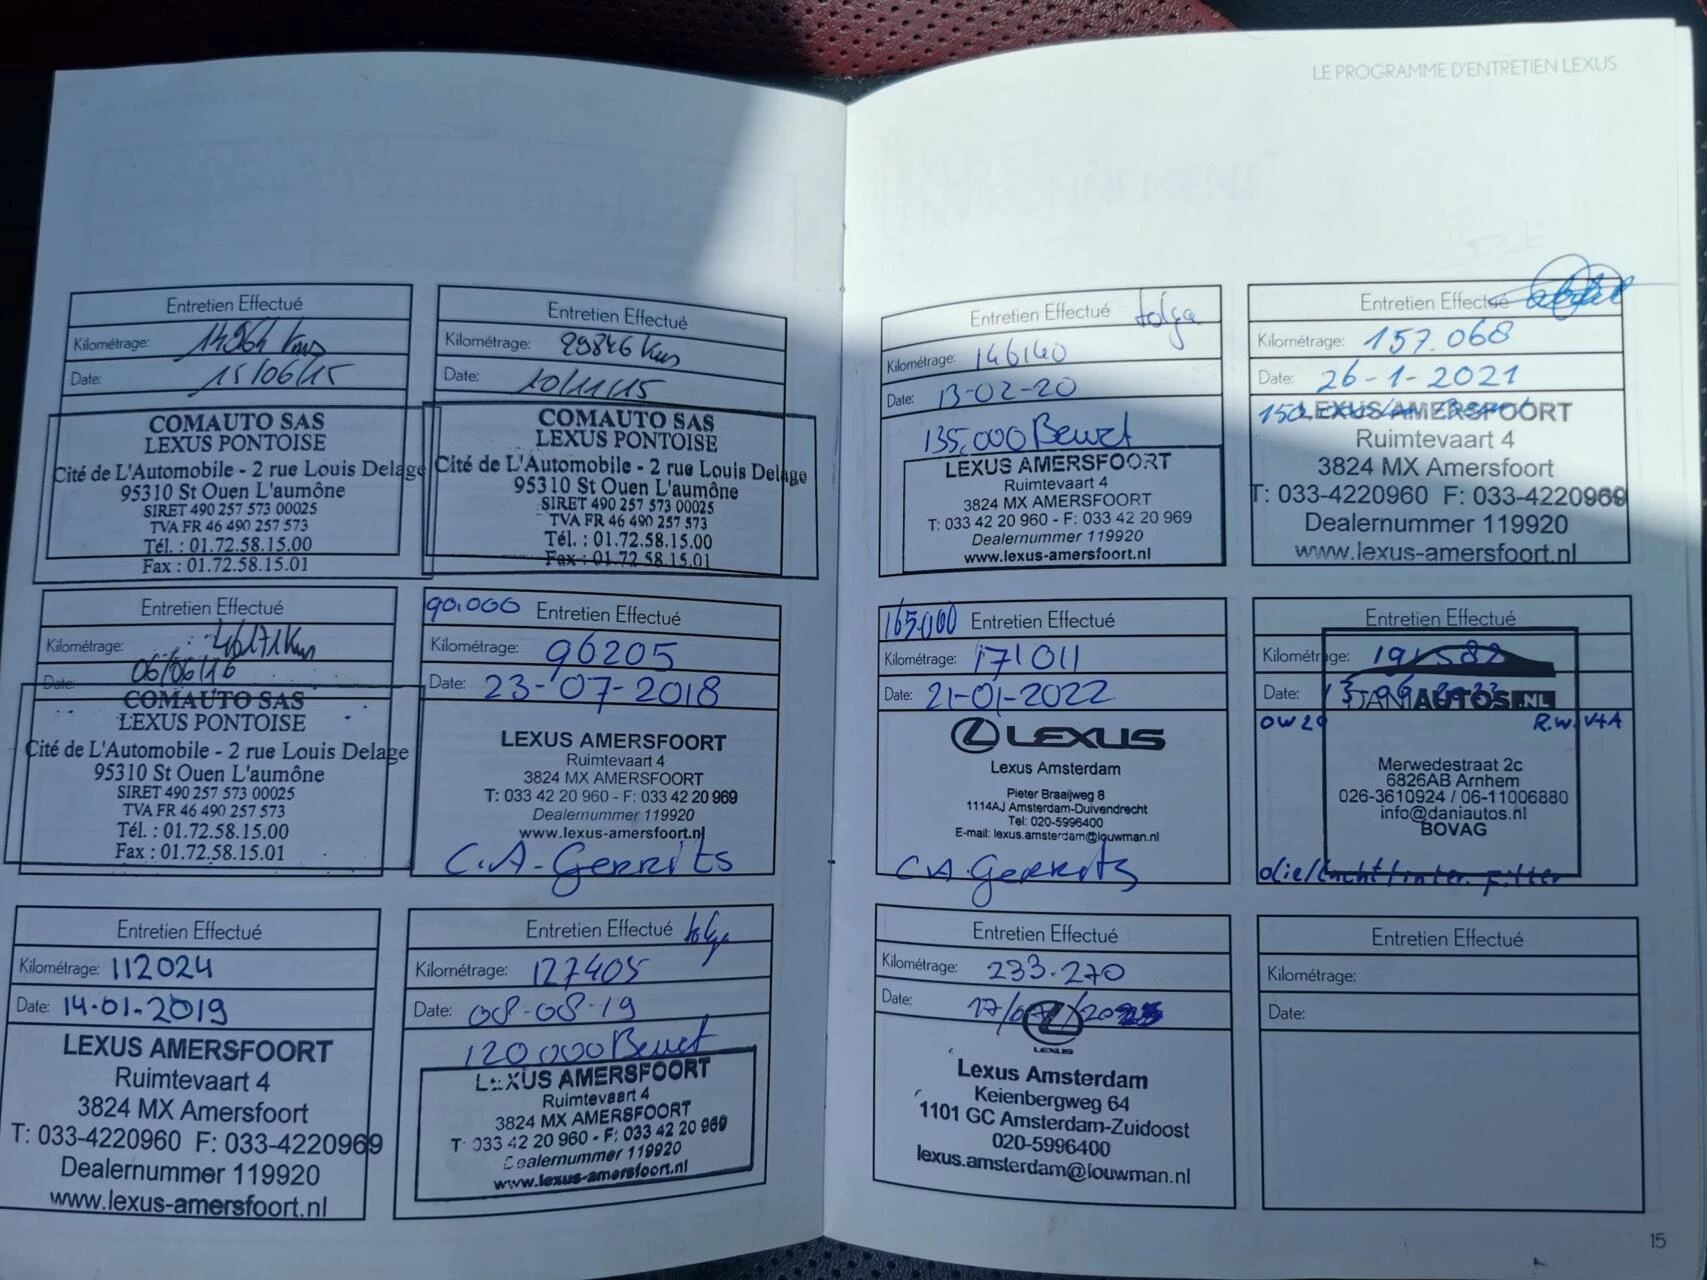 LE PROGRAMME D'ENTRETIEN LEXUS
Entretien Effectué
Kilométrage: 14964 Kms
Date: 15/06/15
COMAUTO SAS
LEXUS PONTOISE
Cité de L'Automobile - 2 rue Louis Delage
95310 St Ouen L'aumône
SIRET 490 257 573 00025
TVA FR 46 490 257 573
Tél. : 01.72.58.15.00
Fax : 01.72.58.15.01
Entretien Effectué
Kilométrage: 29846 Kms
Date: 10/11/15
COMAUTO SAS
LEXUS PONTOISE
Cité de L'Automobile - 2 rue Louis Delage
95310 St Ouen L'aumône
SIRET 490 257 573 00025
TVA FR 46 490 257 573
Tél. : 01.72.58.15.00
Fax : 01.72.58.15.01
Entretien Effectué
Kilométrage: 46171 Kms
Date: 06/06/16
COMAUTO SAS
LEXUS PONTOISE
Cité de L'Automobile - 2 rue Louis Delage
95310 St Ouen L'aumône
SIRET 490 257 573 00025
TVA FR 46 490 257 573
Tél. : 01.72.58.15.00
Fax : 01.72.58.15.01
90.000 Entretien Effectué
Kilométrage: 96205
Date: 23-07-2018
LEXUS AMERSFOORT
Ruimtevaart 4
3824 MX AMERSFOORT
T: 033 42 20 960 - F: 033 42 20 969
Dealernummer 119920
www.lexus-amersfoort.nl
C.A. Gerrits
Entretien Effectué
Kilométrage: 112024
Date: 14-01-2019
LEXUS AMERSFOORT
Ruimtevaart 4
3824 MX Amersfoort
T: 033-4220960 F: 033-4220969
Dealernummer 119920
www.lexus-amersfoort.nl
Entretien Effectué tolga
Kilométrage: 127405
Date: 08-08-19
120.000 Beurt
LEXUS AMERSFOORT
Ruimtevaart 4
3824 MX AMERSFOORT
T: 033 42 20 960 - F: 033 42 20 969
Dealernummer 119920
www.lexus-amersfoort.nl
Entretien Effectué tolga
Kilométrage: 146140
Date: 13-02-20
135.000 Beurt
LEXUS AMERSFOORT
Ruimtevaart 4
3824 MX AMERSFOORT
T: 033 42 20 960 - F: 033 42 20 969
Dealernummer 119920
www.lexus-amersfoort.nl
Entretien Effectué
Kilométrage: 157.068
Date: 26-1-2021
LEXUS AMERSFOORT
Ruimtevaart 4
3824 MX Amersfoort
T: 033-4220960 F: 033-4220969
Dealernummer 119920
www.lexus-amersfoort.nl
165.000 Entretien Effectué
Kilométrage: 171011
Date: 21-01-2022
LEXUS
Lexus Amsterdam
Pieter Braaijweg 8
1114AJ Amsterdam-Duivendrecht
Tel: 020-5996400
E-mail: lexus.amsterdam@louwman.nl
C.A. Gerrits
Entretien Effectué
Kilométrage:
Date:
DANIAUTOS.NL
Merwedestraat 2c
6826AB Arnhem
026-3610924 / 06-11006880
info@daniautos.nl
BOVAG
olie/lucht/inter. filter
Entretien Effectué
Kilométrage: 233.270
Date:
LEXUS
Lexus Amsterdam
Keienbergweg 64
1101 GC Amsterdam-Zuidoost
020-5996400
lexus.amsterdam@louwman.nl
Entretien Effectué
Kilométrage:
Date:
15